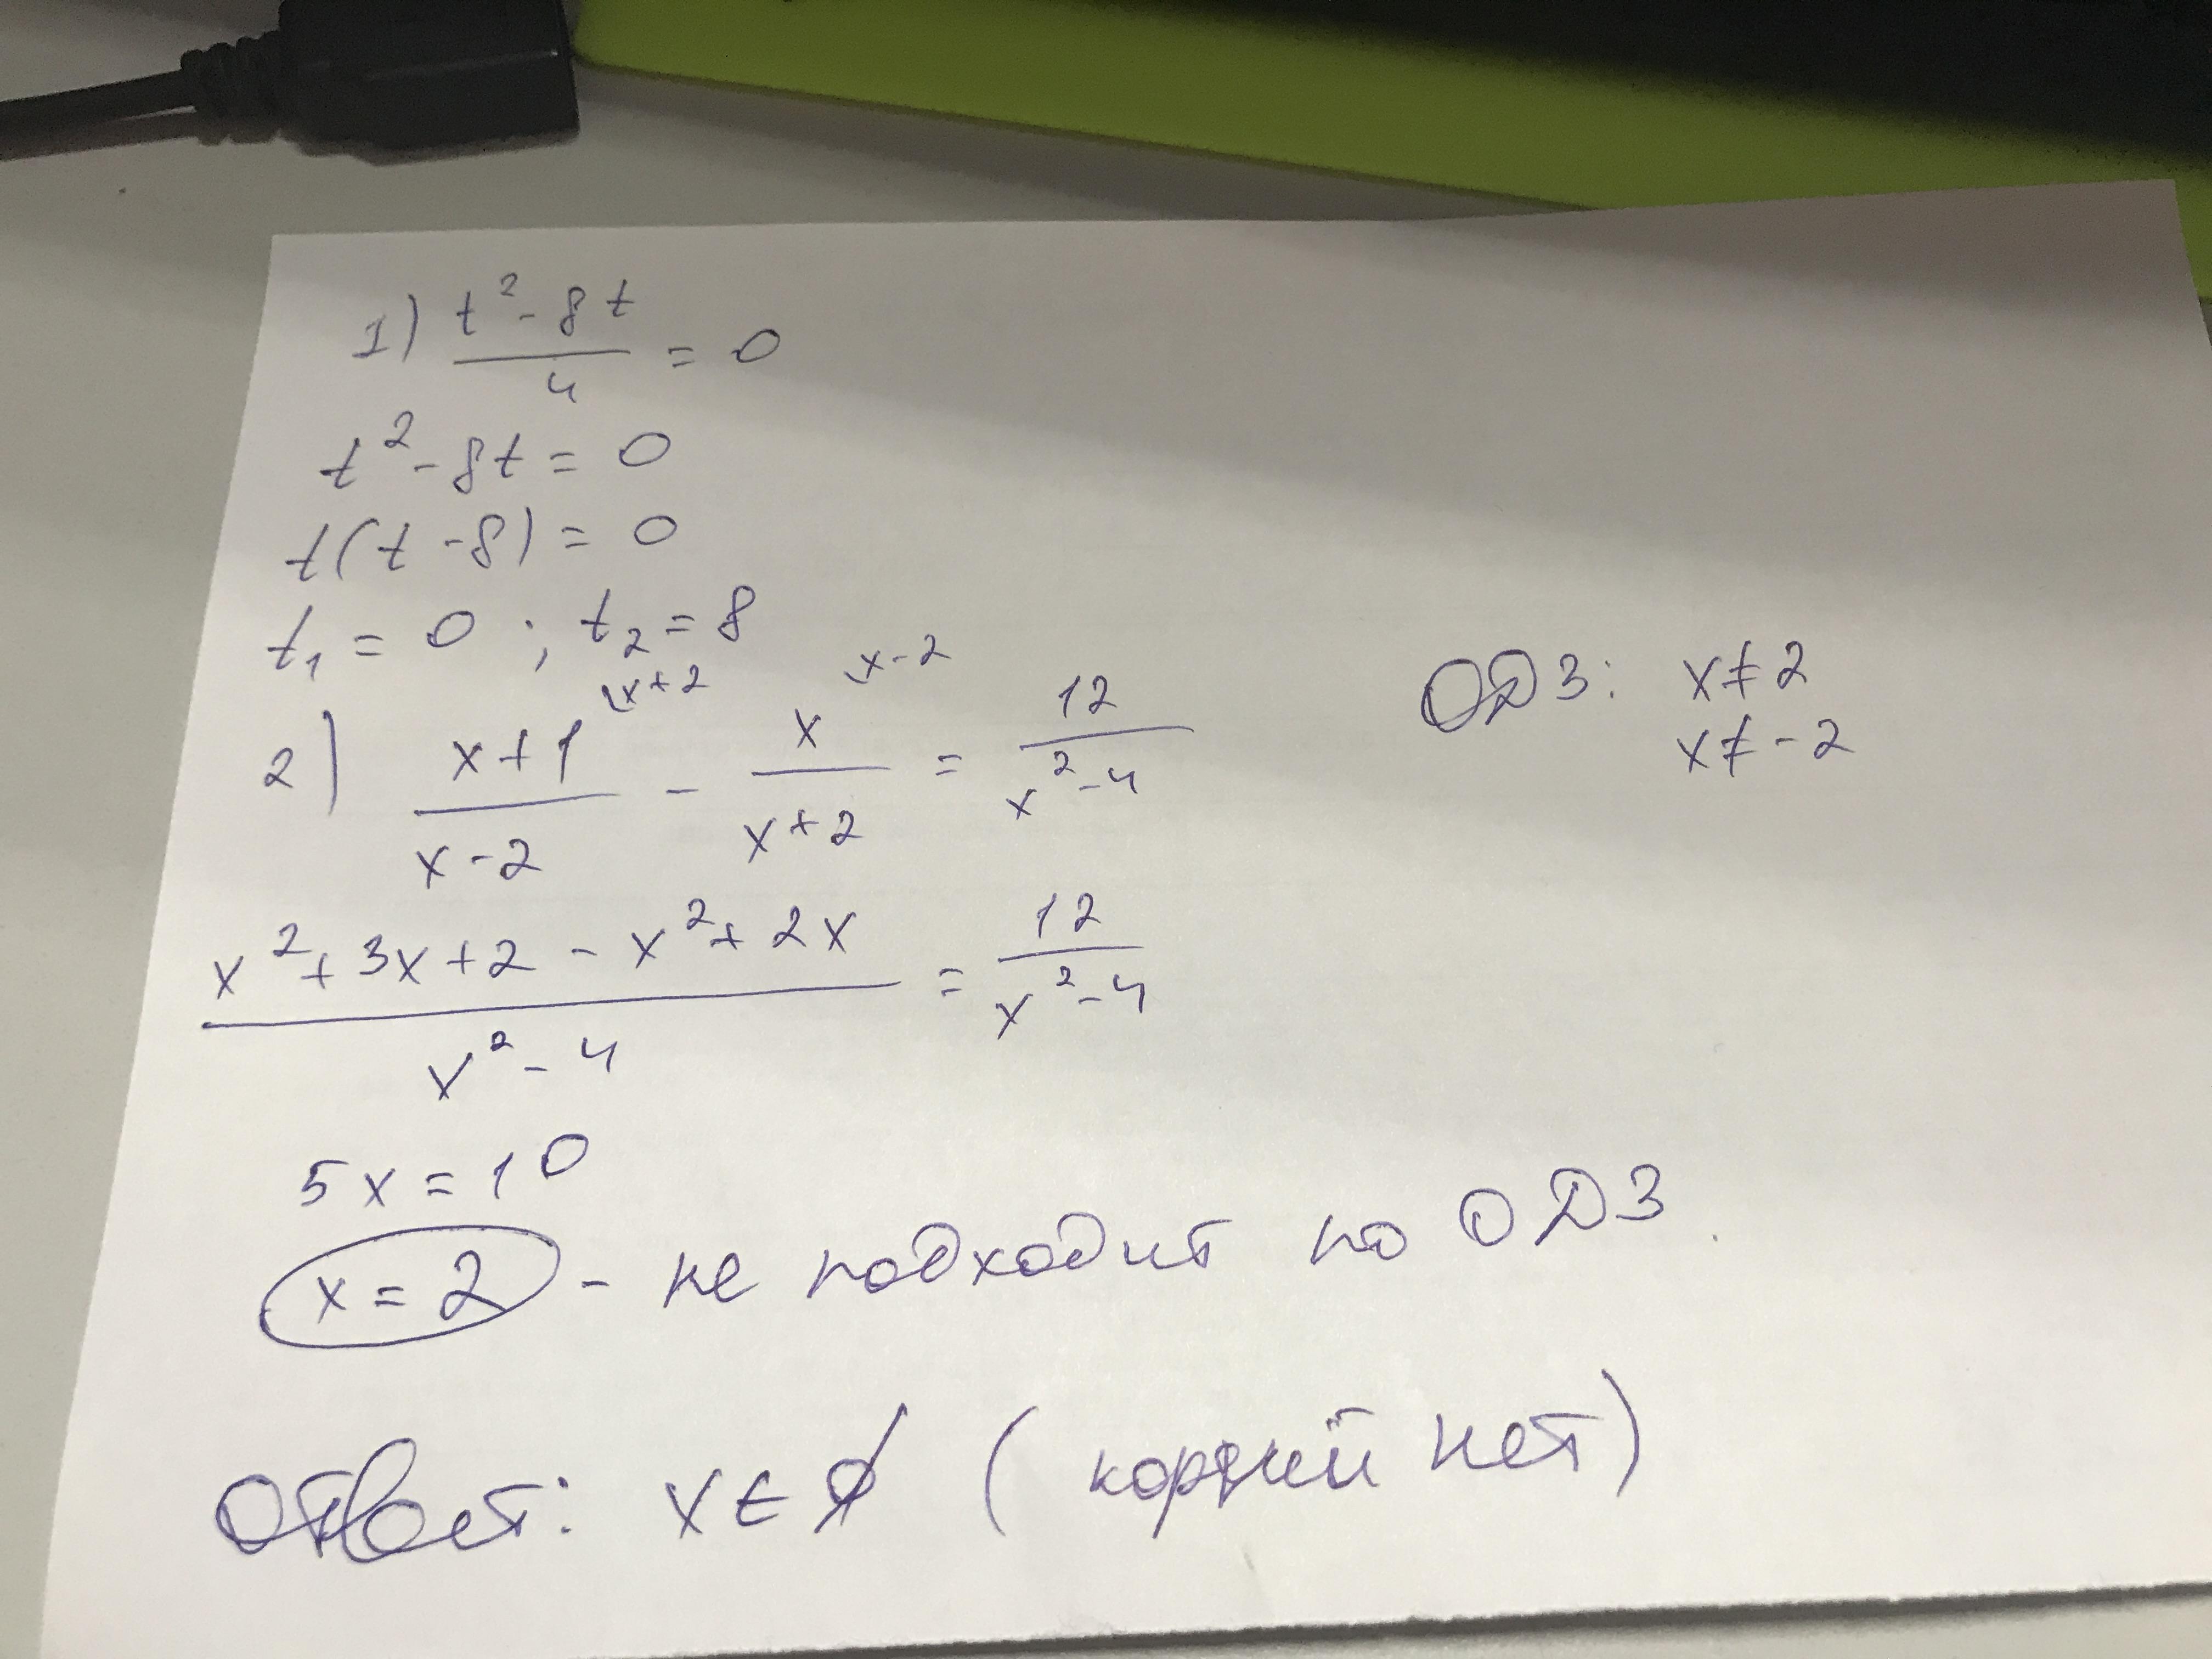 1) (t² - 8t)/4 = 0
t² - 8t = 0
t(t - 8) = 0
t₁ = 0 ; t₂ = 8
2) (x+1)/(x-2) \x+2 - x/(x+2) \x-2 = 12/(x²-4)
ОДЗ: x≠2
x≠-2
(x² + 3x + 2 - x² + 2x)/(x² - 4) = 12/(x² - 4)
5x = 10
x = 2 - не подходит по ОДЗ.
Ответ: x ∈ ∅ (корней нет)